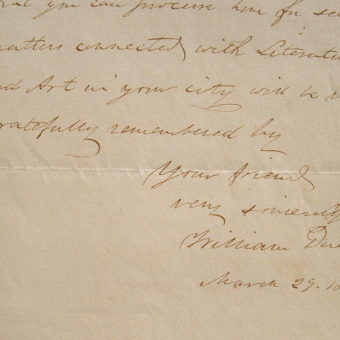 you can procure him for
matters connected with Literatu
nd Art in your city will be
ratefully remembered by
Your friend
very sincerely
William Du
March 29. 18